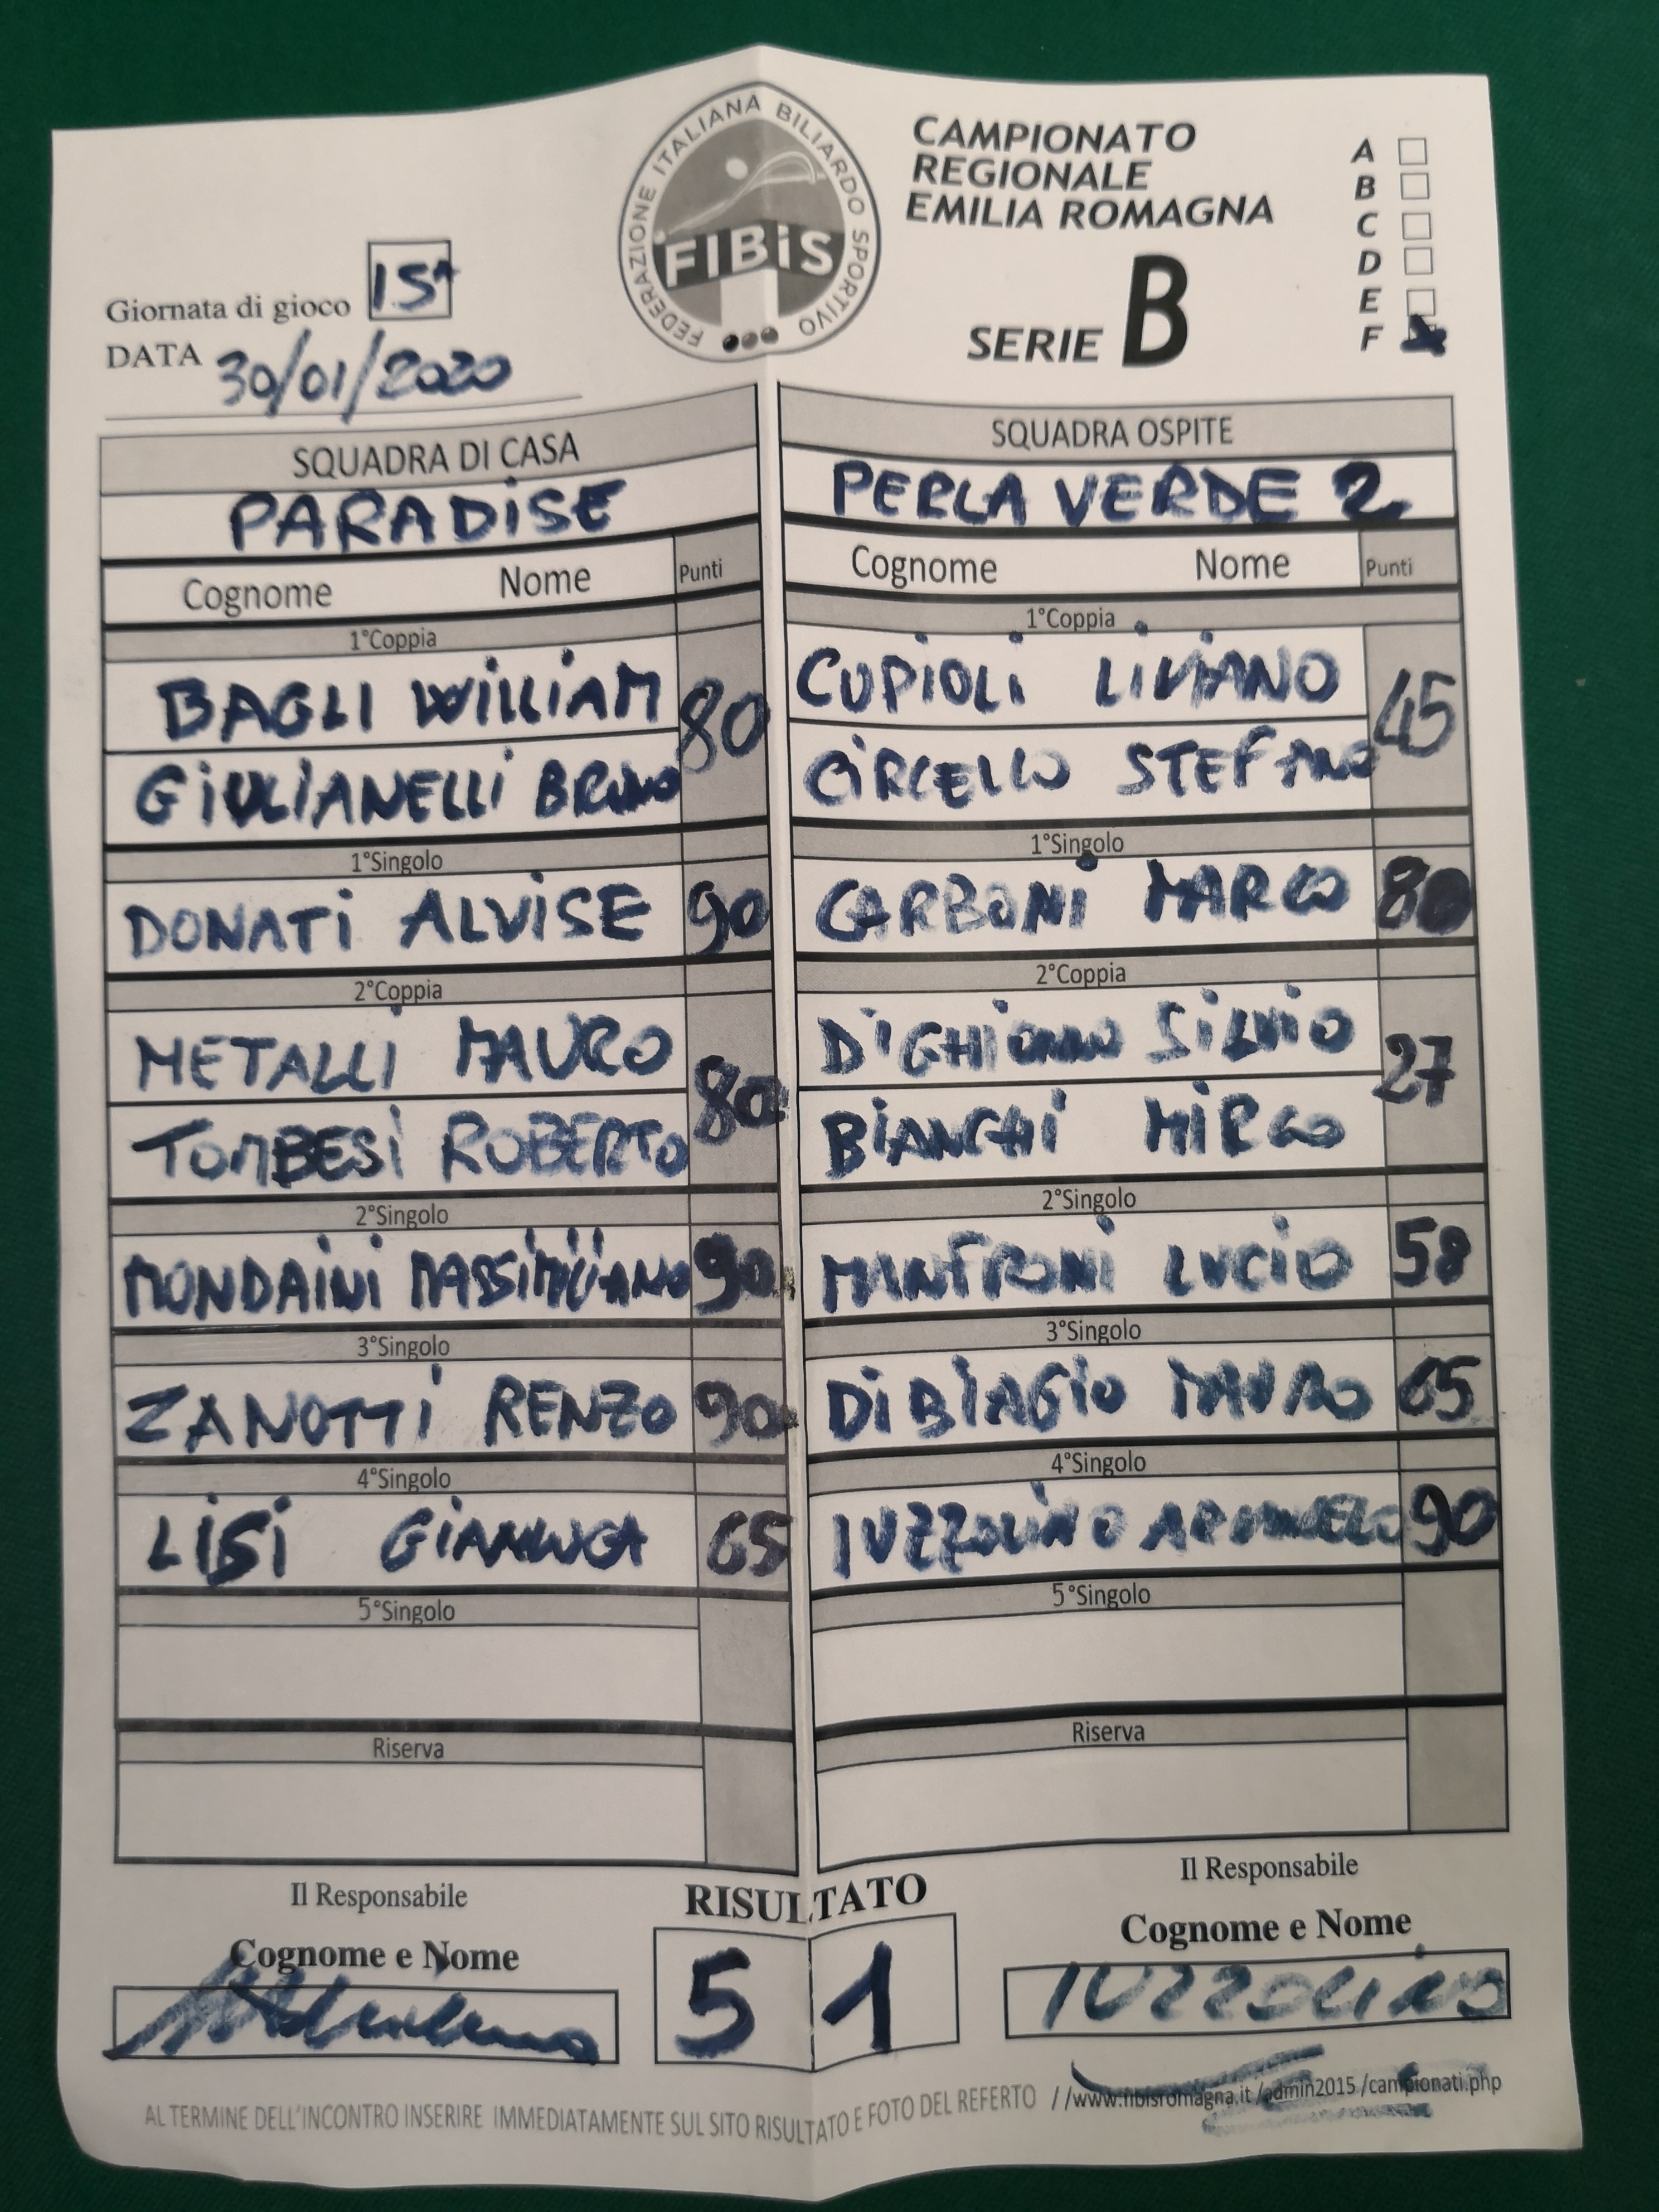 FEDERAZIONE ITALIANA BILIARDO SPORTIVO
FIBiS
CAMPIONATO
REGIONALE
EMILIA ROMAGNA
SERIE B
A
B
C
D
E
F
Giornata di gioco 15^
DATA 30/01/2020
SQUADRA DI CASA
PARADiSE
Cognome Nome Punti
1°Coppia
BAGLI WILLIAM 80
GIULIANELLI BRUNO
1°Singolo
DONATI ALVISE 90
2°Coppia
METALLI MAURO 80
TOMBESI ROBERTO
2°Singolo
MONDAINI MASSIMILIANO 90
3°Singolo
ZANOTTI RENZO 90
4°Singolo
LISI GIANLUCA 65
5°Singolo
Riserva
SQUADRA OSPITE
PERLA VERDE 2
Cognome Nome Punti
1°Coppia
CUPIOLI LIVIANO 45
CIRCELLO STEFANO
1°Singolo
CARBONI MARCO 80
2°Coppia
SILVIO 27
BIANCHI MIRCO
2°Singolo
MANFRONI LUCIO 58
3°Singolo
DI BIAGIO MAURO 65
4°Singolo
IUZZOLINO 90
5°Singolo
Riserva
Il Responsabile
Cognome e Nome
RISULTATO
5 1
Il Responsabile
Cognome e Nome
IUZZOLINO
AL TERMINE DELL'INCONTRO INSERIRE IMMEDIATAMENTE SUL SITO RISULTATO E FOTO DEL REFERTO //www.fibisromagna.it/admin2015/campionati.php